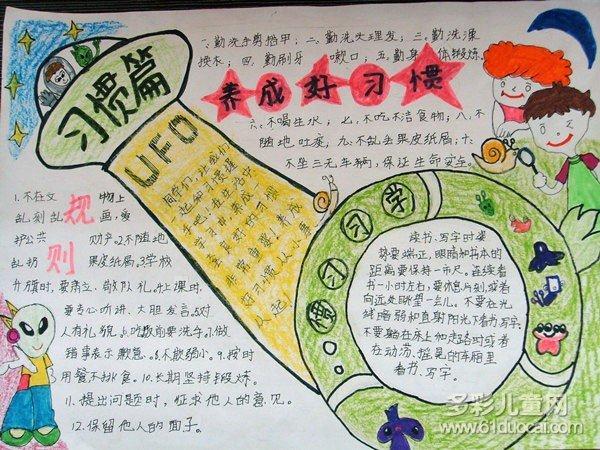 习惯篇
一、勤洗手剪指甲；二、勤洗头理发；三、勤洗澡
换衣；四、勤刷牙 嗽口；五、勤身体锻炼。
养成好习惯
六、不喝生水；七、不吃不洁食物；八、不
随地吐痰；九、不乱丢果皮纸屑；十、
不坐三无车辆，保证生命安全。
UFO
同学们，让我们
从小
起！
规则
1.不在文物上
乱刻乱画，爱
护公共
2.不随地
乱扔果皮纸屑。3.学校
升旗时，要肃立、敬队礼。4.上课时，
要专心听讲、大胆发言。5.对
人有礼貌。6.吃饭前要洗手。7.做
错事表示歉意。8.不欺弱小。9.按时
用餐不挑食。10.长期坚持锻炼。
11.提出问题时，征求他人的意见。
12.保留他人的面子。
学习习惯
读书、写字时姿
势要端正，眼睛和书本的
距离要保持一市尺。连续看
书一小时左右，要休息片刻，或者
向远处眺望一会儿。不要在光
线暗弱和直射阳光下看书、写字。
不要躺在床上和走路时或者
在动荡、摇晃的车厢里
看书、写字。
多彩儿童网
www.61duocai.com